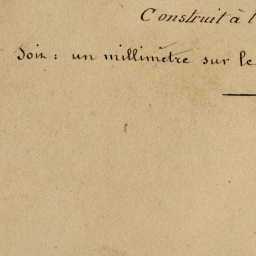 Construit à l
Soit : un millimètre sur le